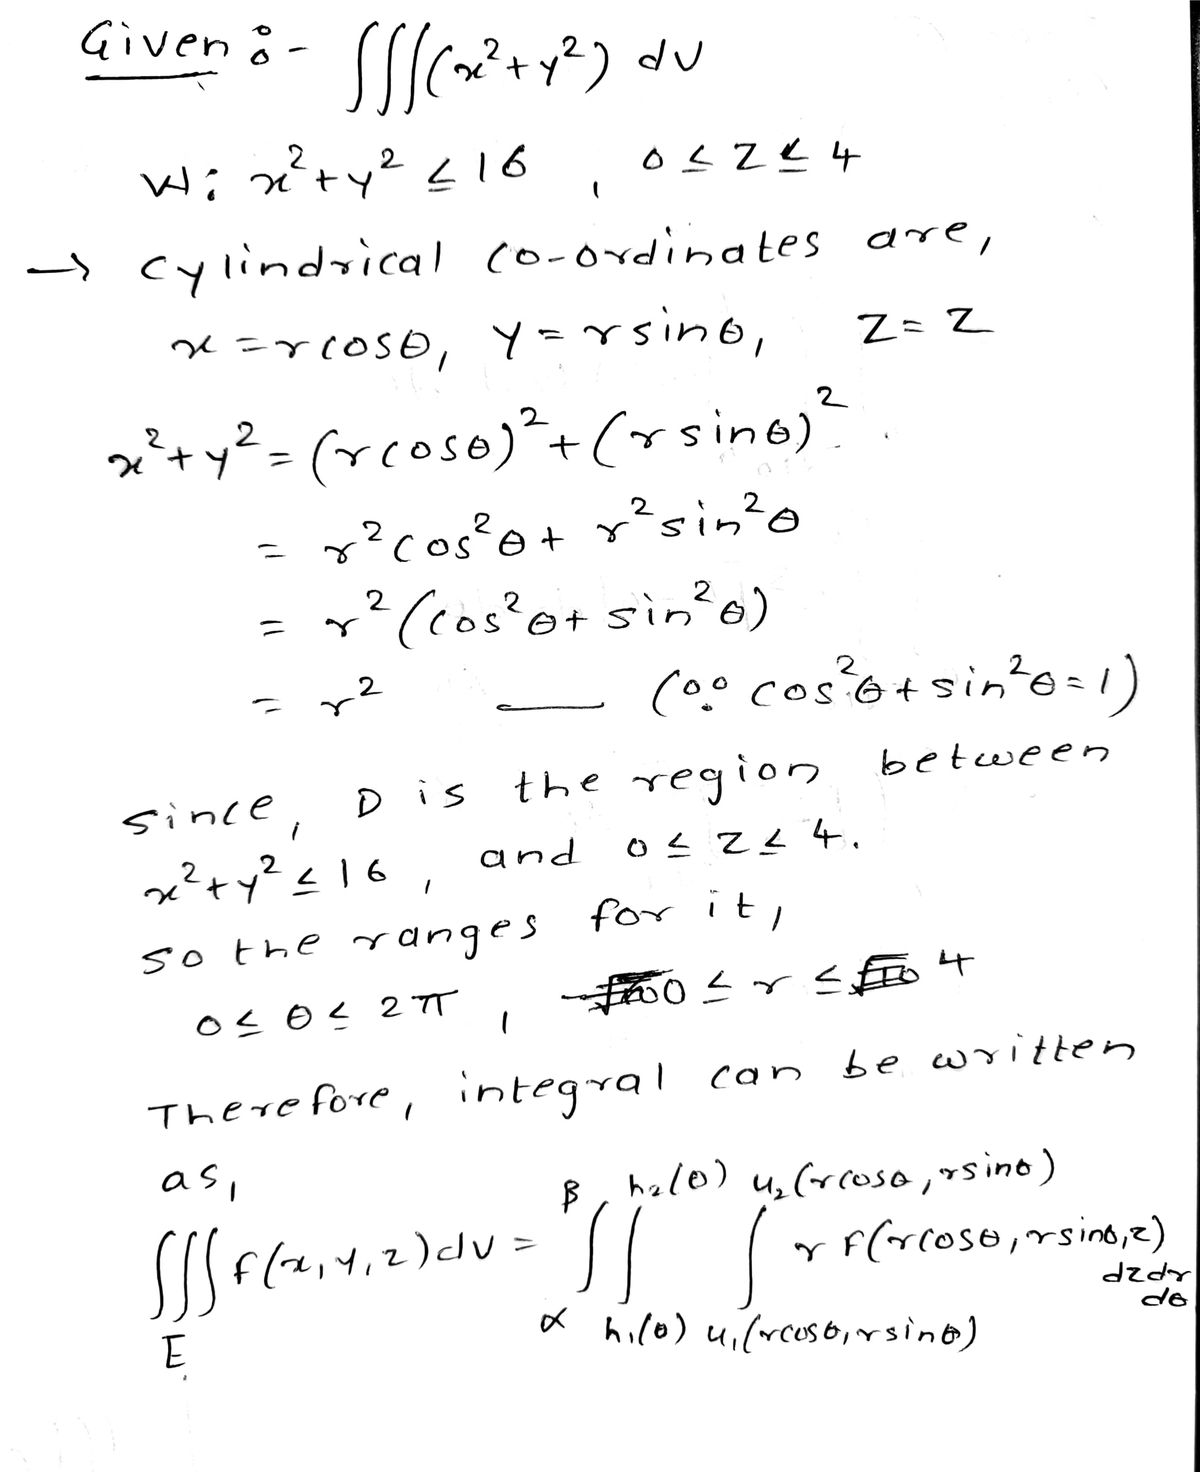 Given :- ∫∫∫(x²+y²) dv
W: x²+y² ≤ 16 , 0 ≤ z ≤ 4
→ cylindrical co-ordinates are,
x = rcosθ, y = rsinθ, z = z
x²+y² = (rcosθ)²+(rsinθ)²
= r²cos²θ + r²sin²θ
= r²(cos²θ + sin²θ)
= r² — (∵ cos²θ + sin²θ = 1)
since, D is the region between
x²+y² ≤ 16 , and 0 ≤ z ≤ 4.
so the ranges for it,
0 ≤ θ ≤ 2π , 0 ≤ r ≤ 4
Therefore, integral can be written
as,
β h₂(θ) u₂(rcosθ, rsinθ)
∫∫∫ f(x,y,z)dv = ∫∫ ∫ r f(rcosθ, rsinθ, z)
dzdr
dθ
E α h₁(θ) u₁(rcosθ, rsinθ)